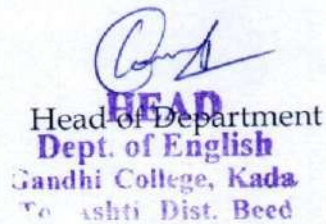 HEAD
Head of Department
Dept. of English
Gandhi College, Kada
Ashti Dist. Beed